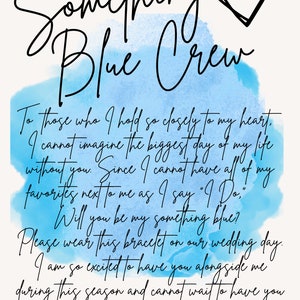 Something
Blue Crew
To those who I hold so closely to my heart,
I cannot imagine the biggest day of my life
without you. Since I cannot have all of my
favorites next to me as I say "I Do."
Will you be my something blue?
Please wear this bracelet on our wedding day.
I am so excited to have you alongside me
during this season and cannot wait to have you